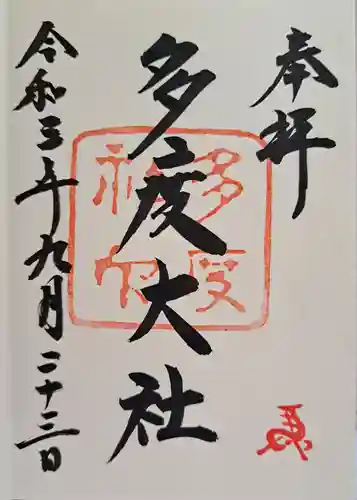 奉拝
多度大社
令和三年九月二十三日
多度
馬